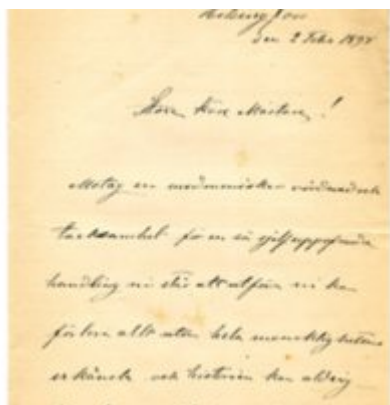 Helsingfors
den 2 Febr 1898
Herr Mästare!
Mottag en medmenniskas vördnad och
tacksamhet för en så sjelfuppofrande
handling ni står att utföra ni kan
förlora allt utom hela mensklighetens
erkänsla och historien kan aldrig